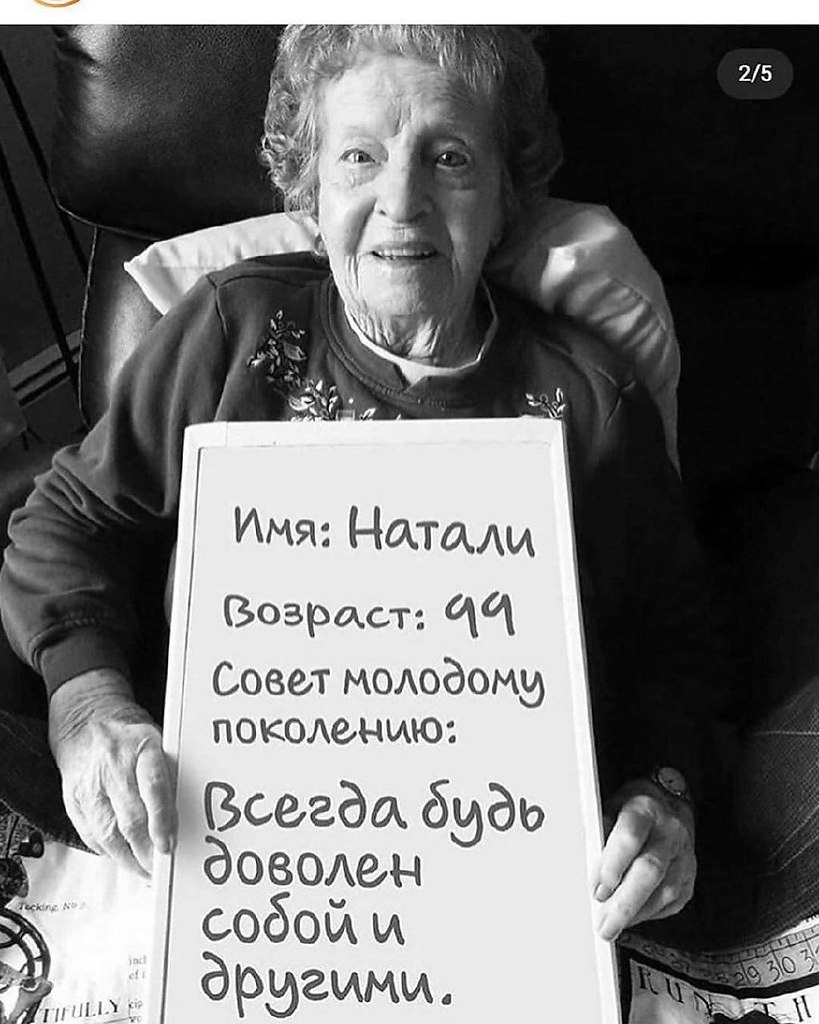 2/5
Имя: Натали
Возраст: 99
Совет молодому
поколению:
Всегда будь
доволен
собой и
другими.
TIFULLY
29 30 3
RUN TH